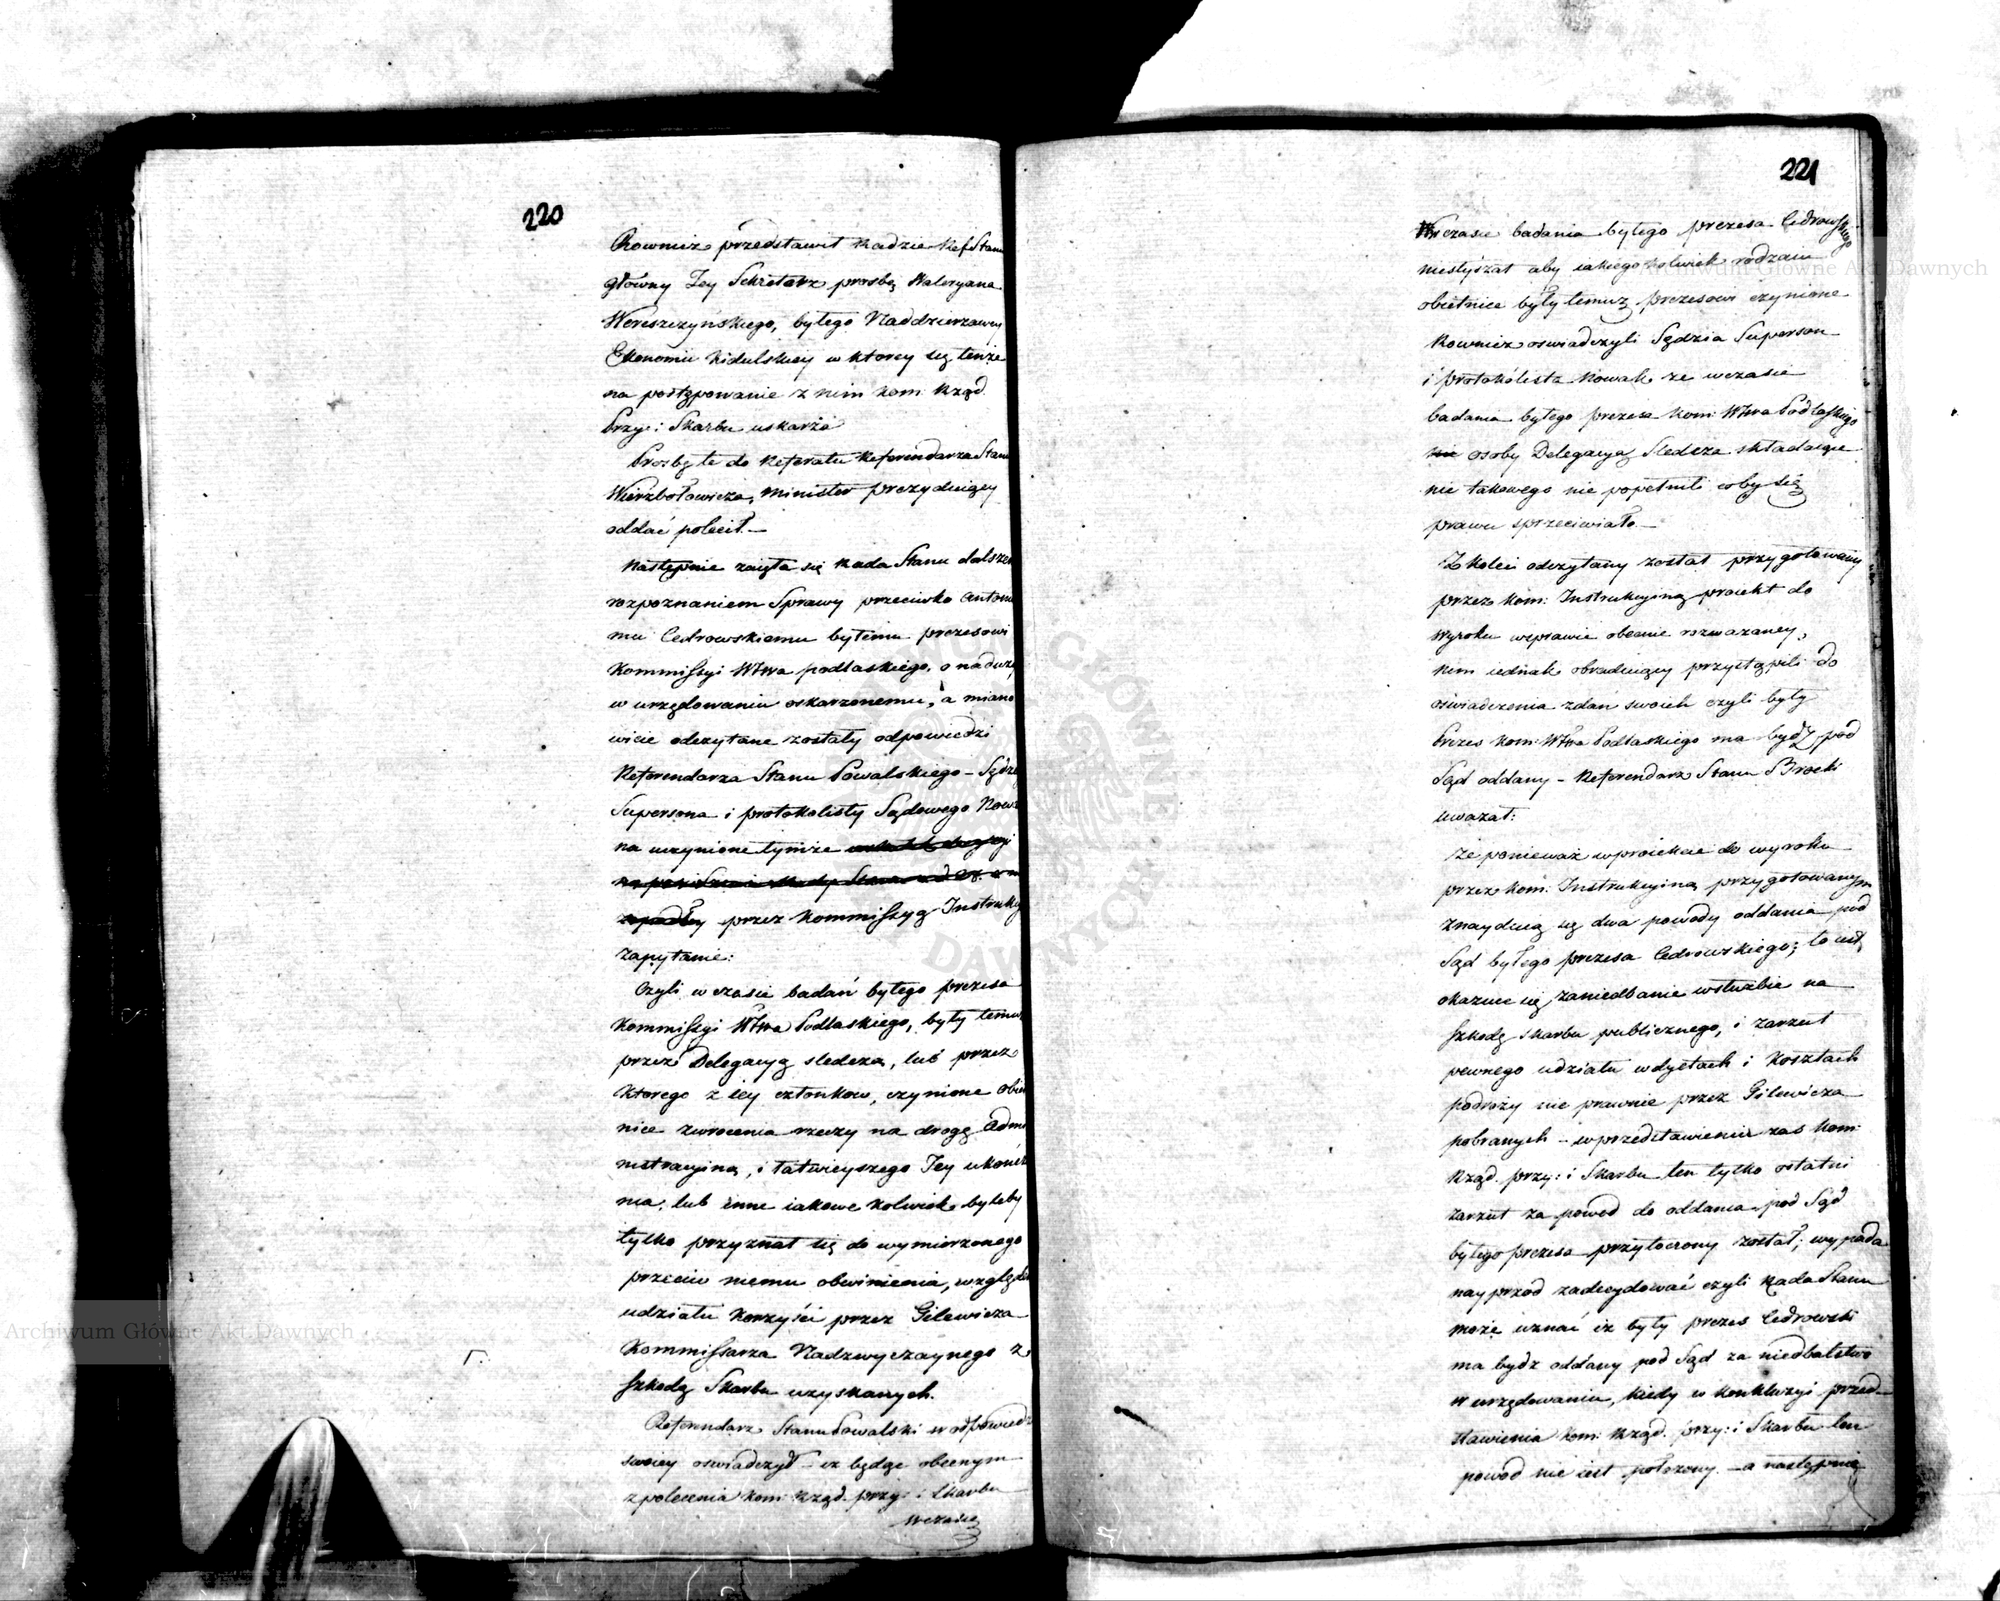 220
Rowniez przedstawił Radzie Ref Stanu
główny Jey Sekretarz prosbę Waleryana
Wereszczyńskiego, byłego Naddzierzawcy
Ekonomii Kidulskiey w ktorey się tenże
na postępowanie z nim Kom: Rząd.
Przy: i Skarbu uskarża
Prosbę te do Referatu Referendarza Stanu
Wierzbołowicza, Minister prezyduiący
oddać polecił. —
Następnie zaięła się Rada Stanu dalszem
rozpoznaniem Sprawy przeciwko Antonie
mu Cedrowskiemu byłemu prezesowi
Kommissyi Wtwa podlaskiego, o naduży
w urzędowaniu oskarzonemu, a miano
wicie odczytane zostały odpowiedzi
Referendarza Stanu Powalskiego — Sędzi
Supersona i protokolisty Sądowego Nowa
na uczynione tymże
przez Kommissyą Instrukcy
zapytanie:
Czyli w czasie badań byłego prezesa
Kommissyi Wtwa Podlaskiego, były temu
przez Delegacyą sledczą, lub przez
ktorego z iey członkow, czynione obie
nice zwrocenia rzeczy na drogę Admi
nistracyiną, i łatwieyszego Jey ukończe
nia, lub inne iakowe kolwiek byleby
tylko przyznał się do wymierzonego
przeciw niemu obwinienia, względem
udziału korzyści przez Gilewicza
Kommissarza Nadzwyczaynego z
szkodą Skarbu uzyskanych.
Referendarz Stanu Powalski w odpowiedzi
swoiey oswiadczył — iz będąc obecnym
z polecenia Kom: Rząd. przy: i Skarbu
w czasie
221
W czasie badania byłego prezesa Cedrowskiego
niesłyszał aby iakiegokolwiek rodzaiu
obietnice były temuż prezesowi czynione
Rowniez oswiadczyli Sędzia Superson
i protokólista Nowak ze w czasie
badania byłego prezesa Kom: Wtwa Podlaskiego
nie osoby Delegacyą Sledczą składaiące
nic takowego nie popełnili coby się
prawu sprzeciwiało —
Z kolei odczytany został przygotowany
przez Kom: Instrukcyiną proiekt do
wyroku w sprawie obecnie rozwazaney,
nim iednak obraduiący przystąpili do
oswiadczenia zdań swoich czyli były
Prezes Kom: Wtwa Podlaskiego ma bydź pod
Sąd oddany — Referendarz Stanu Brocki
uwazał:
Ze ponieważ w proiekcie do wyroku
przez Kom: Instrukcyiną przygotowanym
znayduią się dwa powody oddania pod
Sąd byłego prezesa Cedrowskiego; to iest
okazuie się zaniedbanie w służbie na
szkodę skarbu publicznego, i zarzut
pewnego udziału w dyetach i kosztach
podroży nie prawnie przez Gilewicza
pobranych — w przedstawieniu zas Kom:
Rząd. przy: i Skarbu ten tylko ostatni
zarzut za powod do oddania pod Sąd
byłego prezesa przytoczony został; wypada
nayprzod zadecydować czyli Rada Stanu
może uznać iz były prezes Cedrowski
ma bydz oddany pod Sąd za niedbalstwo
w urzędowaniu, kiedy w konkluzyi przed-
stawienia Kom: Rząd. przy: i Skarbu ten
powod nie iest położony — a następnie